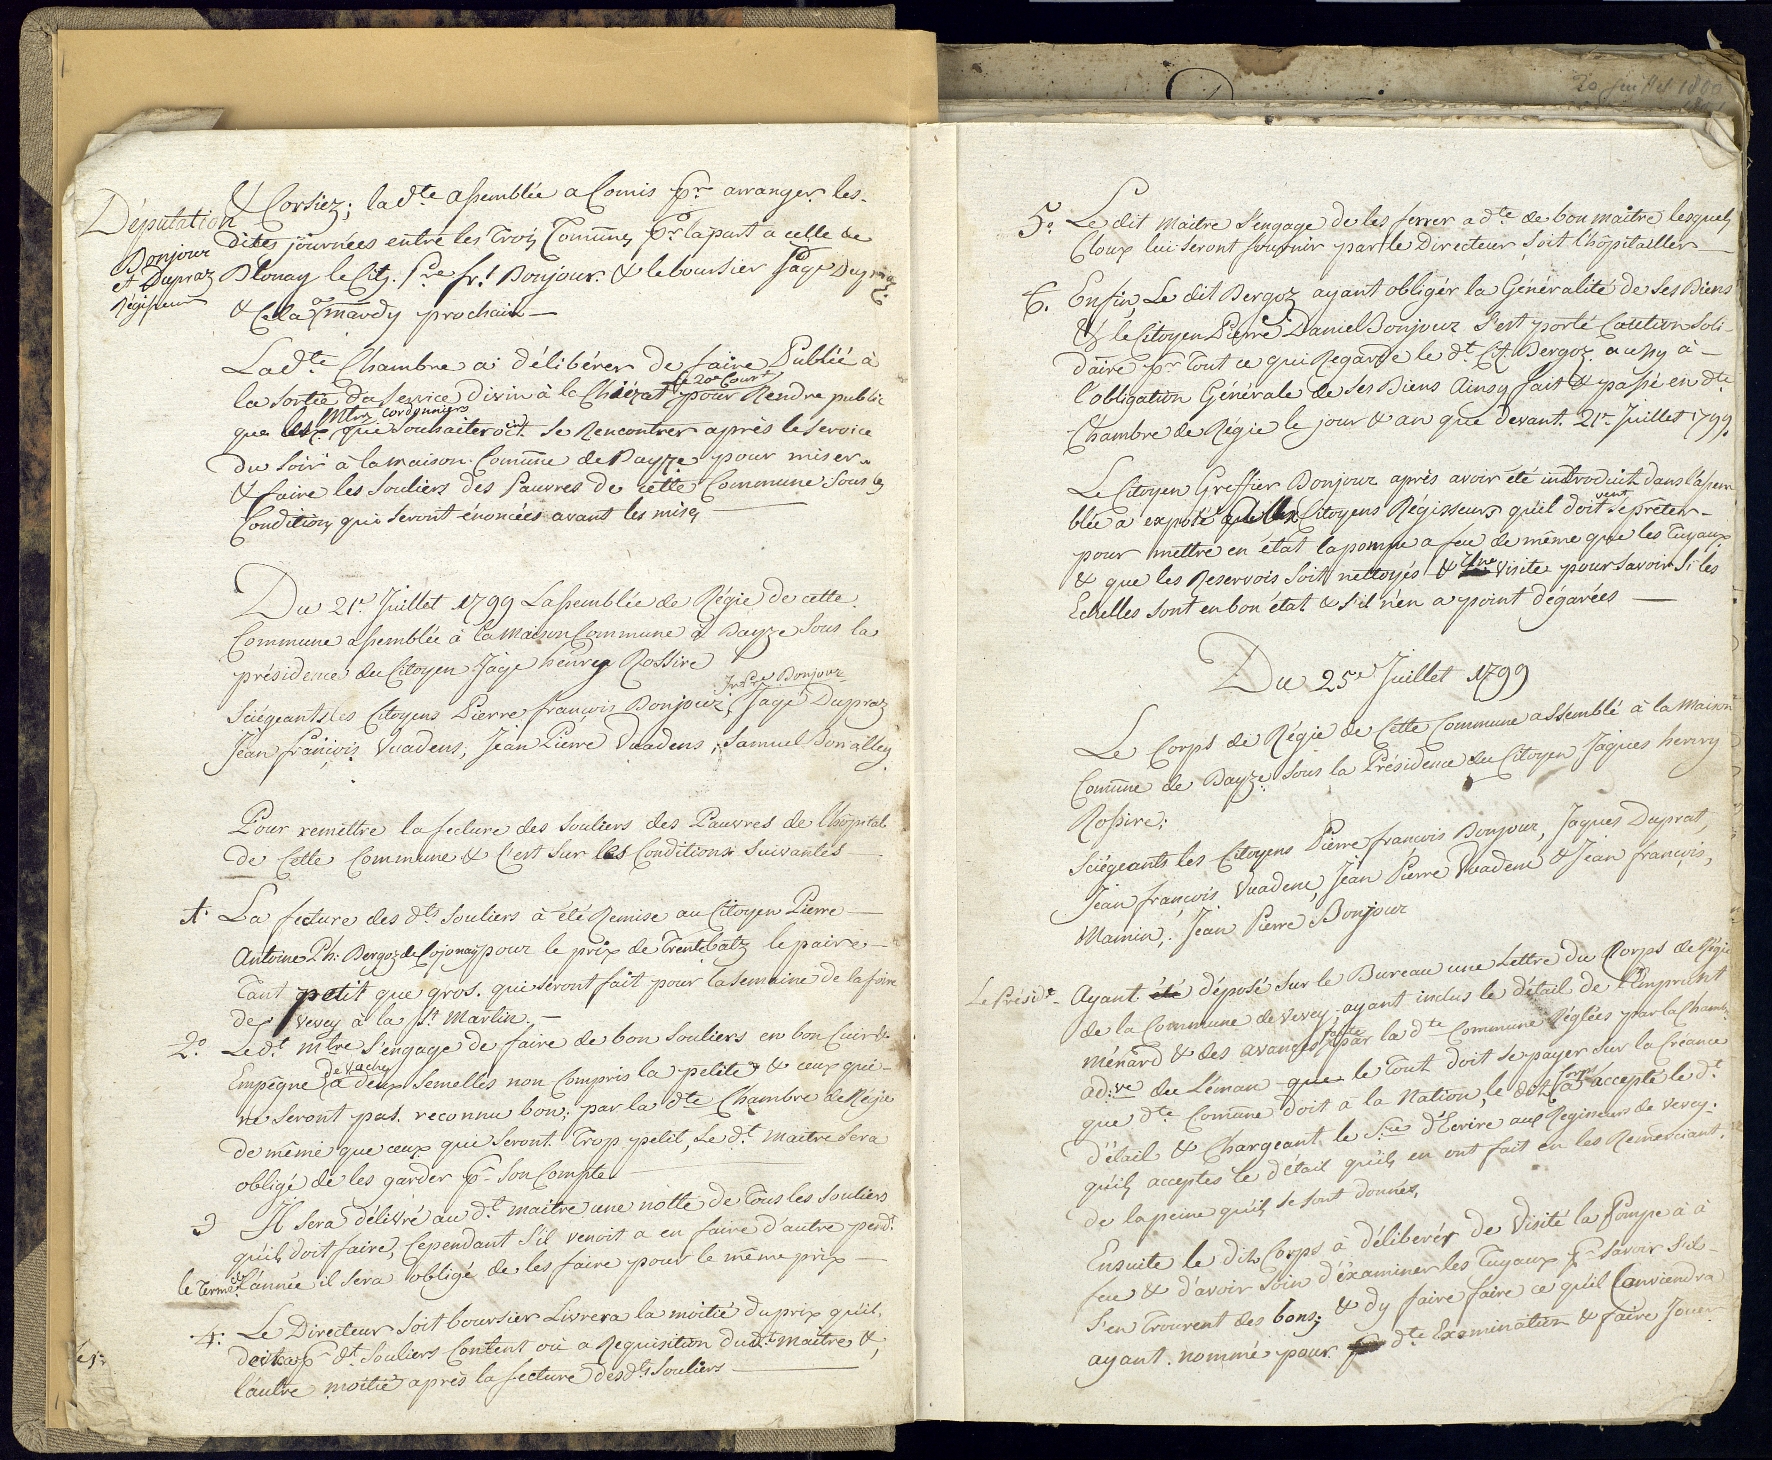 Députation
Bonjour
et Dupraz
Régisseurs
& Corsiez; la dte assemblée a Comis pr arranger les
dites journées entre les trois Comunes pr la part a celle de
Blonay le Cit. Pre fs Bonjour & le boursier Jaqe Dupraz
& Cela mardy prochain —
La dte Chambre a délibérer de faire Publié à
la sortie du Service divin à la Chiézat le 20e Court pour Rendre public
que les Mtres cordonniers qui souhaiteroint se Rencontrer après le Service
du Soir à la maison Comune de Bayze pour miser
& faire les souliers des Pauvres de cette Commune sous les
Conditions qui seront énoncées avant les mises
Du 21e Juillet 1799 L'assemblée de Régie de cette
Commune assemblée à la maison Commune à Bayze sous la
présidence du Citoyen Jaqe henry Rossire
Jn Pre Bonjour
Sciégeants les Citoyens Pierre françois Bonjour, Jaqe Dupraz
Jean françois Vuadens, Jean Pierre Vuadens, Samuel Bonalley
Pour remettre la fecture des souliers des Pauvres de l'hôpital
de Cette Commune & C'est sur les Conditions suivantes
1. La fecture des dts souliers à été Remise au Citoyen Pierre
Antoine Ph: Bergoz de Cojonay pour le prix de Trente batz le paire
Tant petit que gros. qui seront fait pour la semaine de la foire
de Vevey à la St Martin. —
2o Le dt mtre s'engage de faire de bon souliers en bon Cuir &
Empeigne de vache à deux semelles non compris la petite & ceux qui
ne seront pas reconnu bon; par la dte Chambre de Régie
de même que ceux que seront Trop petit, Le dt maitre sera
obligé de les garder pr son Compte
3 Il sera délivré au dt maitre une notte de tous les souliers
qu'ils doit faire, Cependant s'il venoit a en faire d'autre pendt
le terme de l'année il sera obligé de les faire pour le même prix —
4. Le Directeur soit boursier Livrera la moitié du prix qu'il
doit pr dt souliers Content où a Requisition dudt maitre &
l'autre moitié après la fecture des dts souliers
5o Le dit maitre s'engage de les ferrer a dte de bon maitre lesquels
Cloux lui seront fournir par le Directeur soit l'hôpitailler
6. Enfin, Le dit Bergoz ayant obligér la Généralité de ses Biens
& le Citoyen Pierre Daniel Bonjour s'est porté Caution soli-
daire pr Tout ce qui Regarde le dt Ct. Bergoz aussy à
l'obligation Générale de ses Biens Ainsy fait & passé en dte
Chambre de Régie le jour & an que devant. 21e Juillet 1799.
Le Citoyen Greffier Bonjour après avoir été introduit dans l'assem
blée a exposé Citoyens Régisseurs qu'il doitvent se prêter
pour mettre en état la pompe a feu de même que les Tuyaux
& que les Reservois soit nettoyés & Une visite pour savoir si les
Echelles sont en bon état & s'il n'en a point d'égarées
Du 25e Juillet 1799
Le Corps de Régie de Cette Commune assemblé à la Maison
Comune de Bayze sous la Présidence du Citoyen Jaques henry
Rossire;
Sciégeants les Citoyens Pierre françois Bonjour, Jaques Duprat,
Jean françois Vuadens, Jean Pierre Vuadens & Jean françois,
Mamin, Jean Pierre Bonjour
Le Présidt Ayant été déposé sur le Bureau une Lettre du Corps de Régie
de la Commune de Vevey; ayant inclus le détail de l'Emprunt
ménard & des avances faite par la dte Commune Réglées par la Chambe
ad:ve du Léman que le Tout doit se payer sur la Créance
que dte Comune doit a la Nation, le dit Corps a accepté le dt
détail & Chargeant le Sre d'Ecrire aux Régisseurs de Vevey.
qu'ils acceptes le détail qu'ils en ont fait en les Remerciant
de la peine qu'ils se sont donnés,
Ensuite le dit Corps à délibérér de visité la Pompe à
feu & d'avoir soin d'éxaminer les Tuyaux pr savoir s'il
s'en trouvent des bons; & d'y faire faire ce qu'il Conviendra
ayant nommé pour dte Examination & faire Jouer